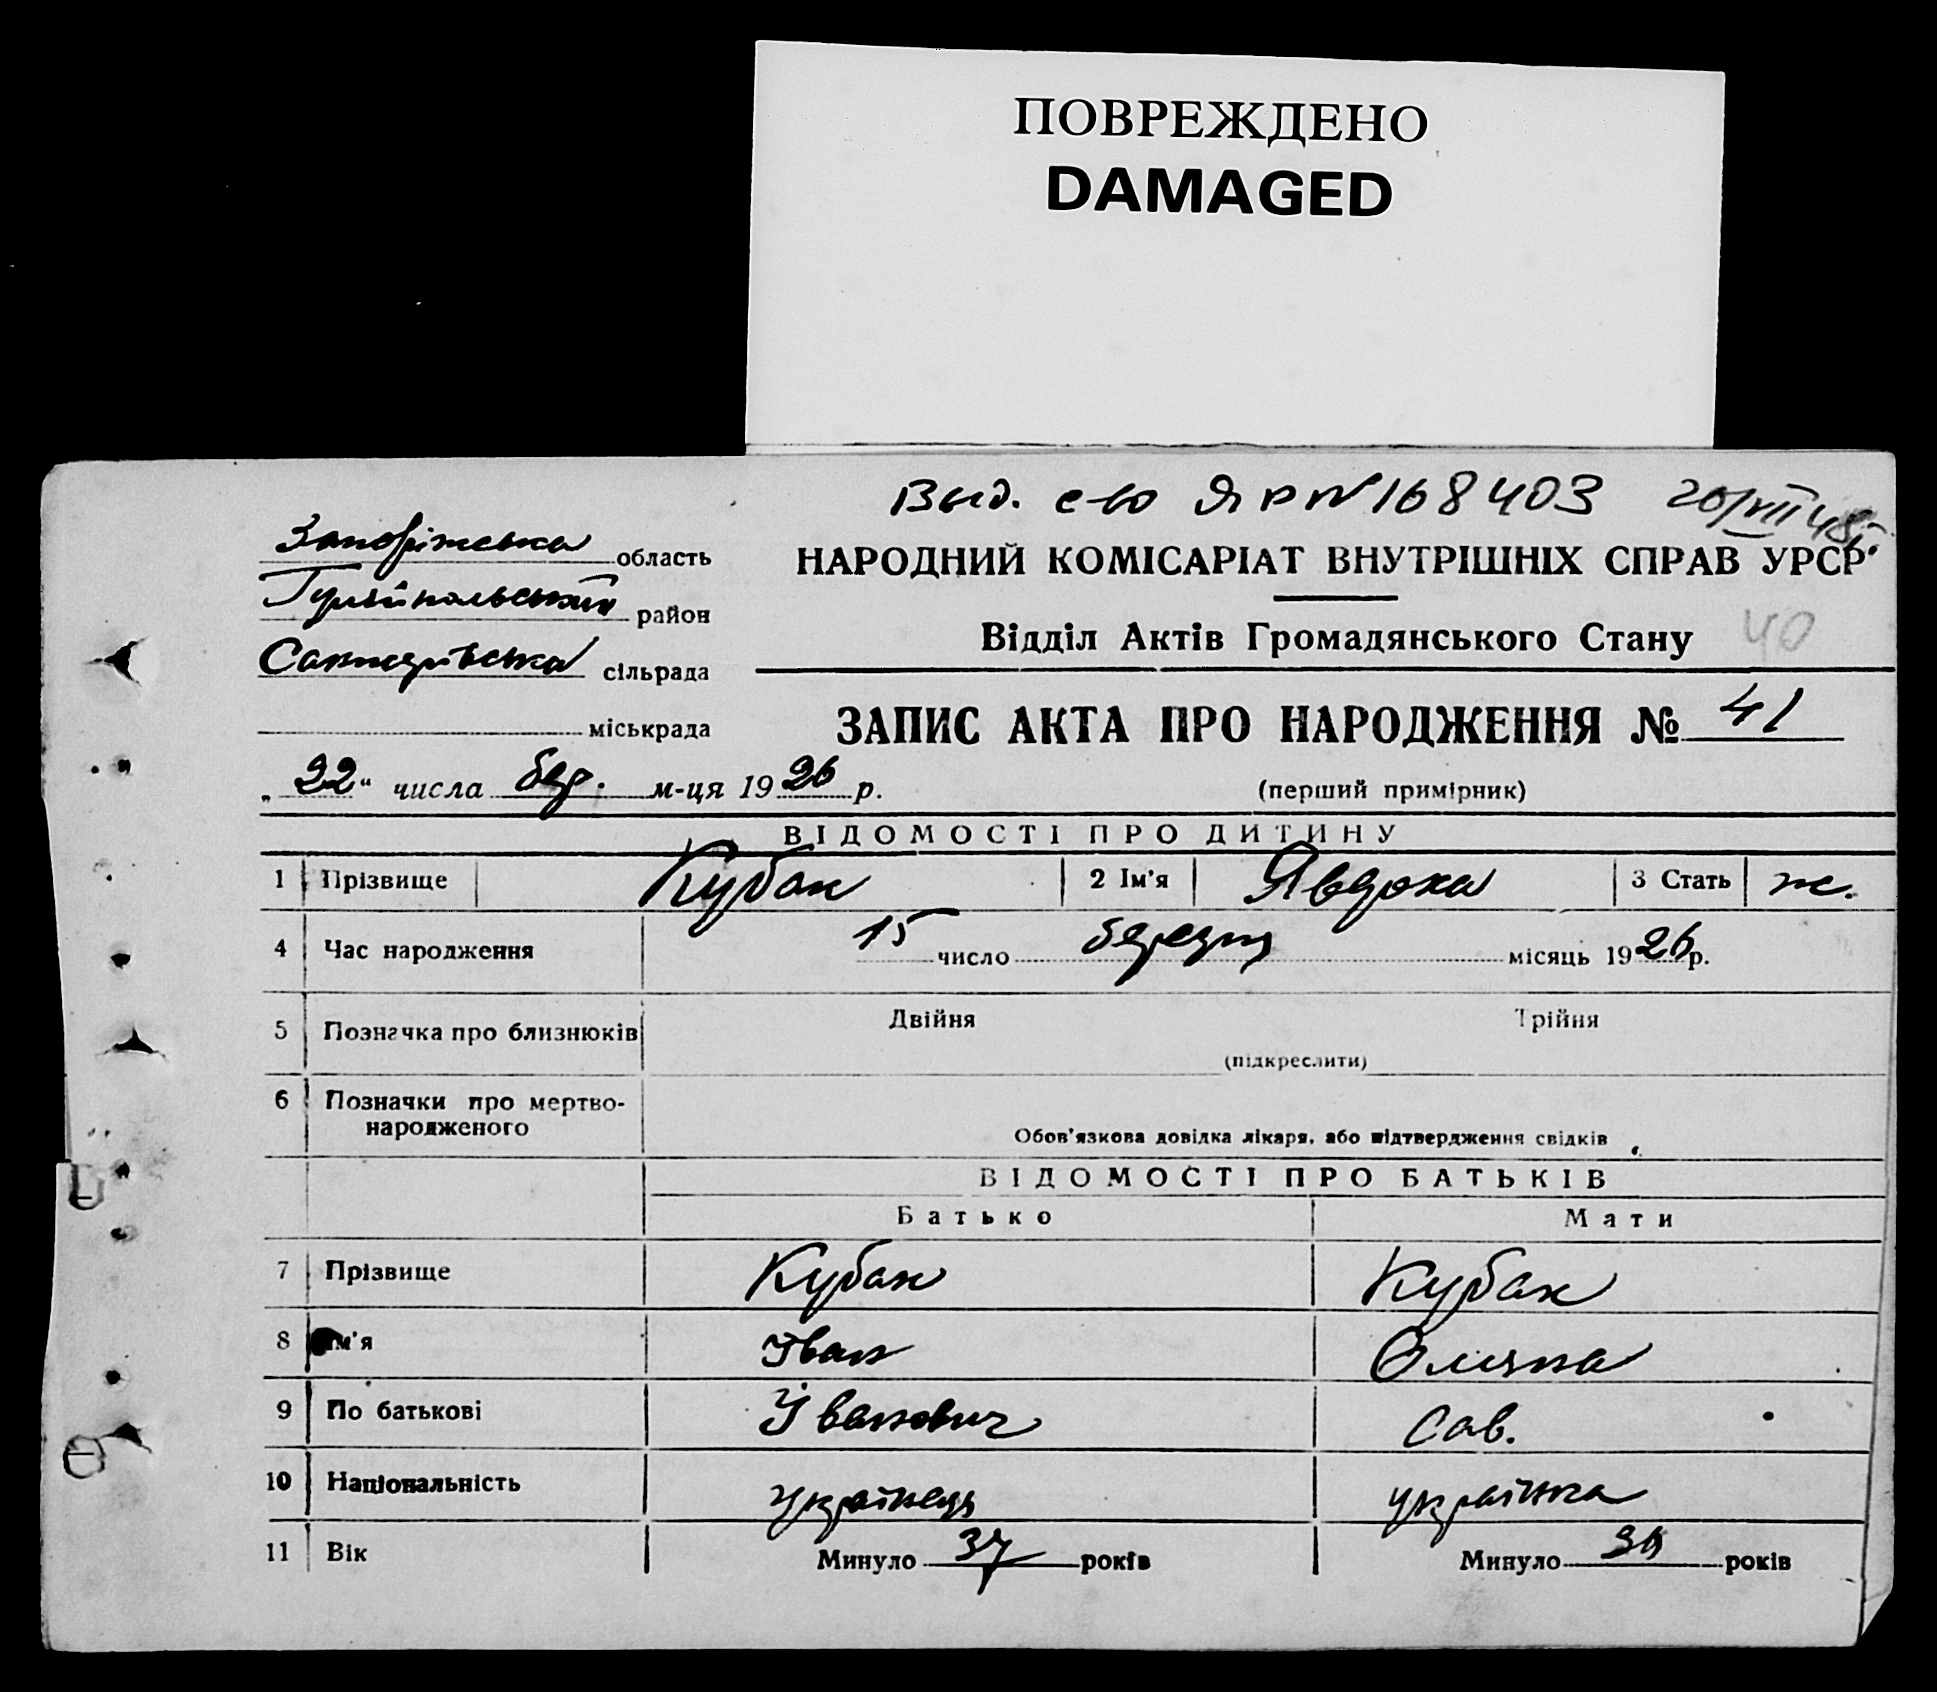 ПОВРЕЖДЕНО
DAMAGED
Выд. с-во ЯР № 168403 20/VII 48г.
Запоріжська область
Гуляйпольський район
сільрада
міськрада
НАРОДНИЙ КОМІСАРІАТ ВНУТРІШНІХ СПРАВ УРСР
Відділ Актів Громадянського Стану 40
ЗАПИС АКТА ПРО НАРОДЖЕННЯ № 41
(перший примірник)
„22“ числа бер. м-ця 1926 р.
ВІДОМОСТІ ПРО ДИТИНУ
1 Прізвище Кубак 2 Ім'я Явдоха 3 Стать ж.
4 Час народження 15 число березня місяць 1926 р.
5 Позначка про близнюків Двійня Трійня
(підкреслити)
6 Позначки про мертво-
народженого
Обов'язкова довідка лікаря, або підтвердження свідків
ВІДОМОСТІ ПРО БАТЬКІВ
Батько Мати
7 Прізвище Кубак Кубак
8 Ім'я Іван Оляна
9 По батькові Іванович Сав.
10 Національність українець українка
11 Вік Минуло 37 років Минуло років